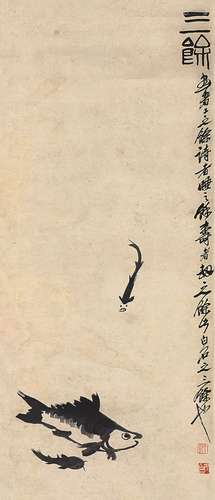 三餘
畫者工之餘詩者睡之餘壽者劫之餘此白石之三餘也